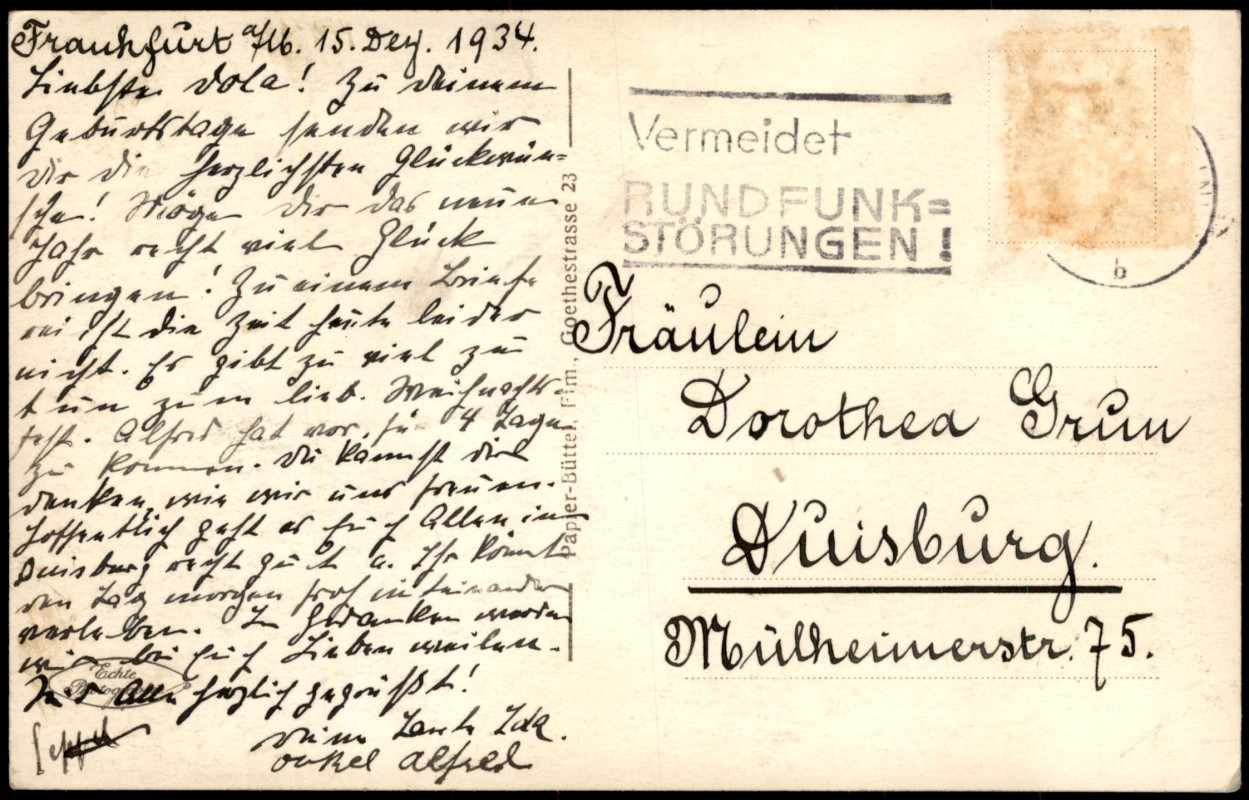 Frankfurt a/M. 15. Dez. 1934.
Liebste Dola! Zu deinem
Geburtstage senden wir
dir die herzlichsten Glückwün=
sche! Möge dir das neue
Jahr recht viel Glück
bringen! Zu einem Briefe
ist die Zeit heute leider
nicht. Es gibt zu viel zu
tun zum lieb. Weihnachts-
fest. Alfred hat vor, für 4 Tage
zu kommen. Du kannst dir
denken, wie wir uns freuen.
Hoffentlich geht es Euch Allen in
Duisburg recht gut u. Ihr könnt
den Tag morgen froh miteinander
verleben. In Gedanken werden
wir bei Euch Lieben weilen.
Alle herzlich gegrüßt!
deine Tante Ida.
Onkel Alfred
Echte
Photographie
Papier-Büttel, Ffm., Goethestrasse 23
Vermeidet
RUNDFUNK=
STÖRUNGEN!
b
Fräulein
Dorothea Grün
Duisburg.
Mülheimerstr. 75.